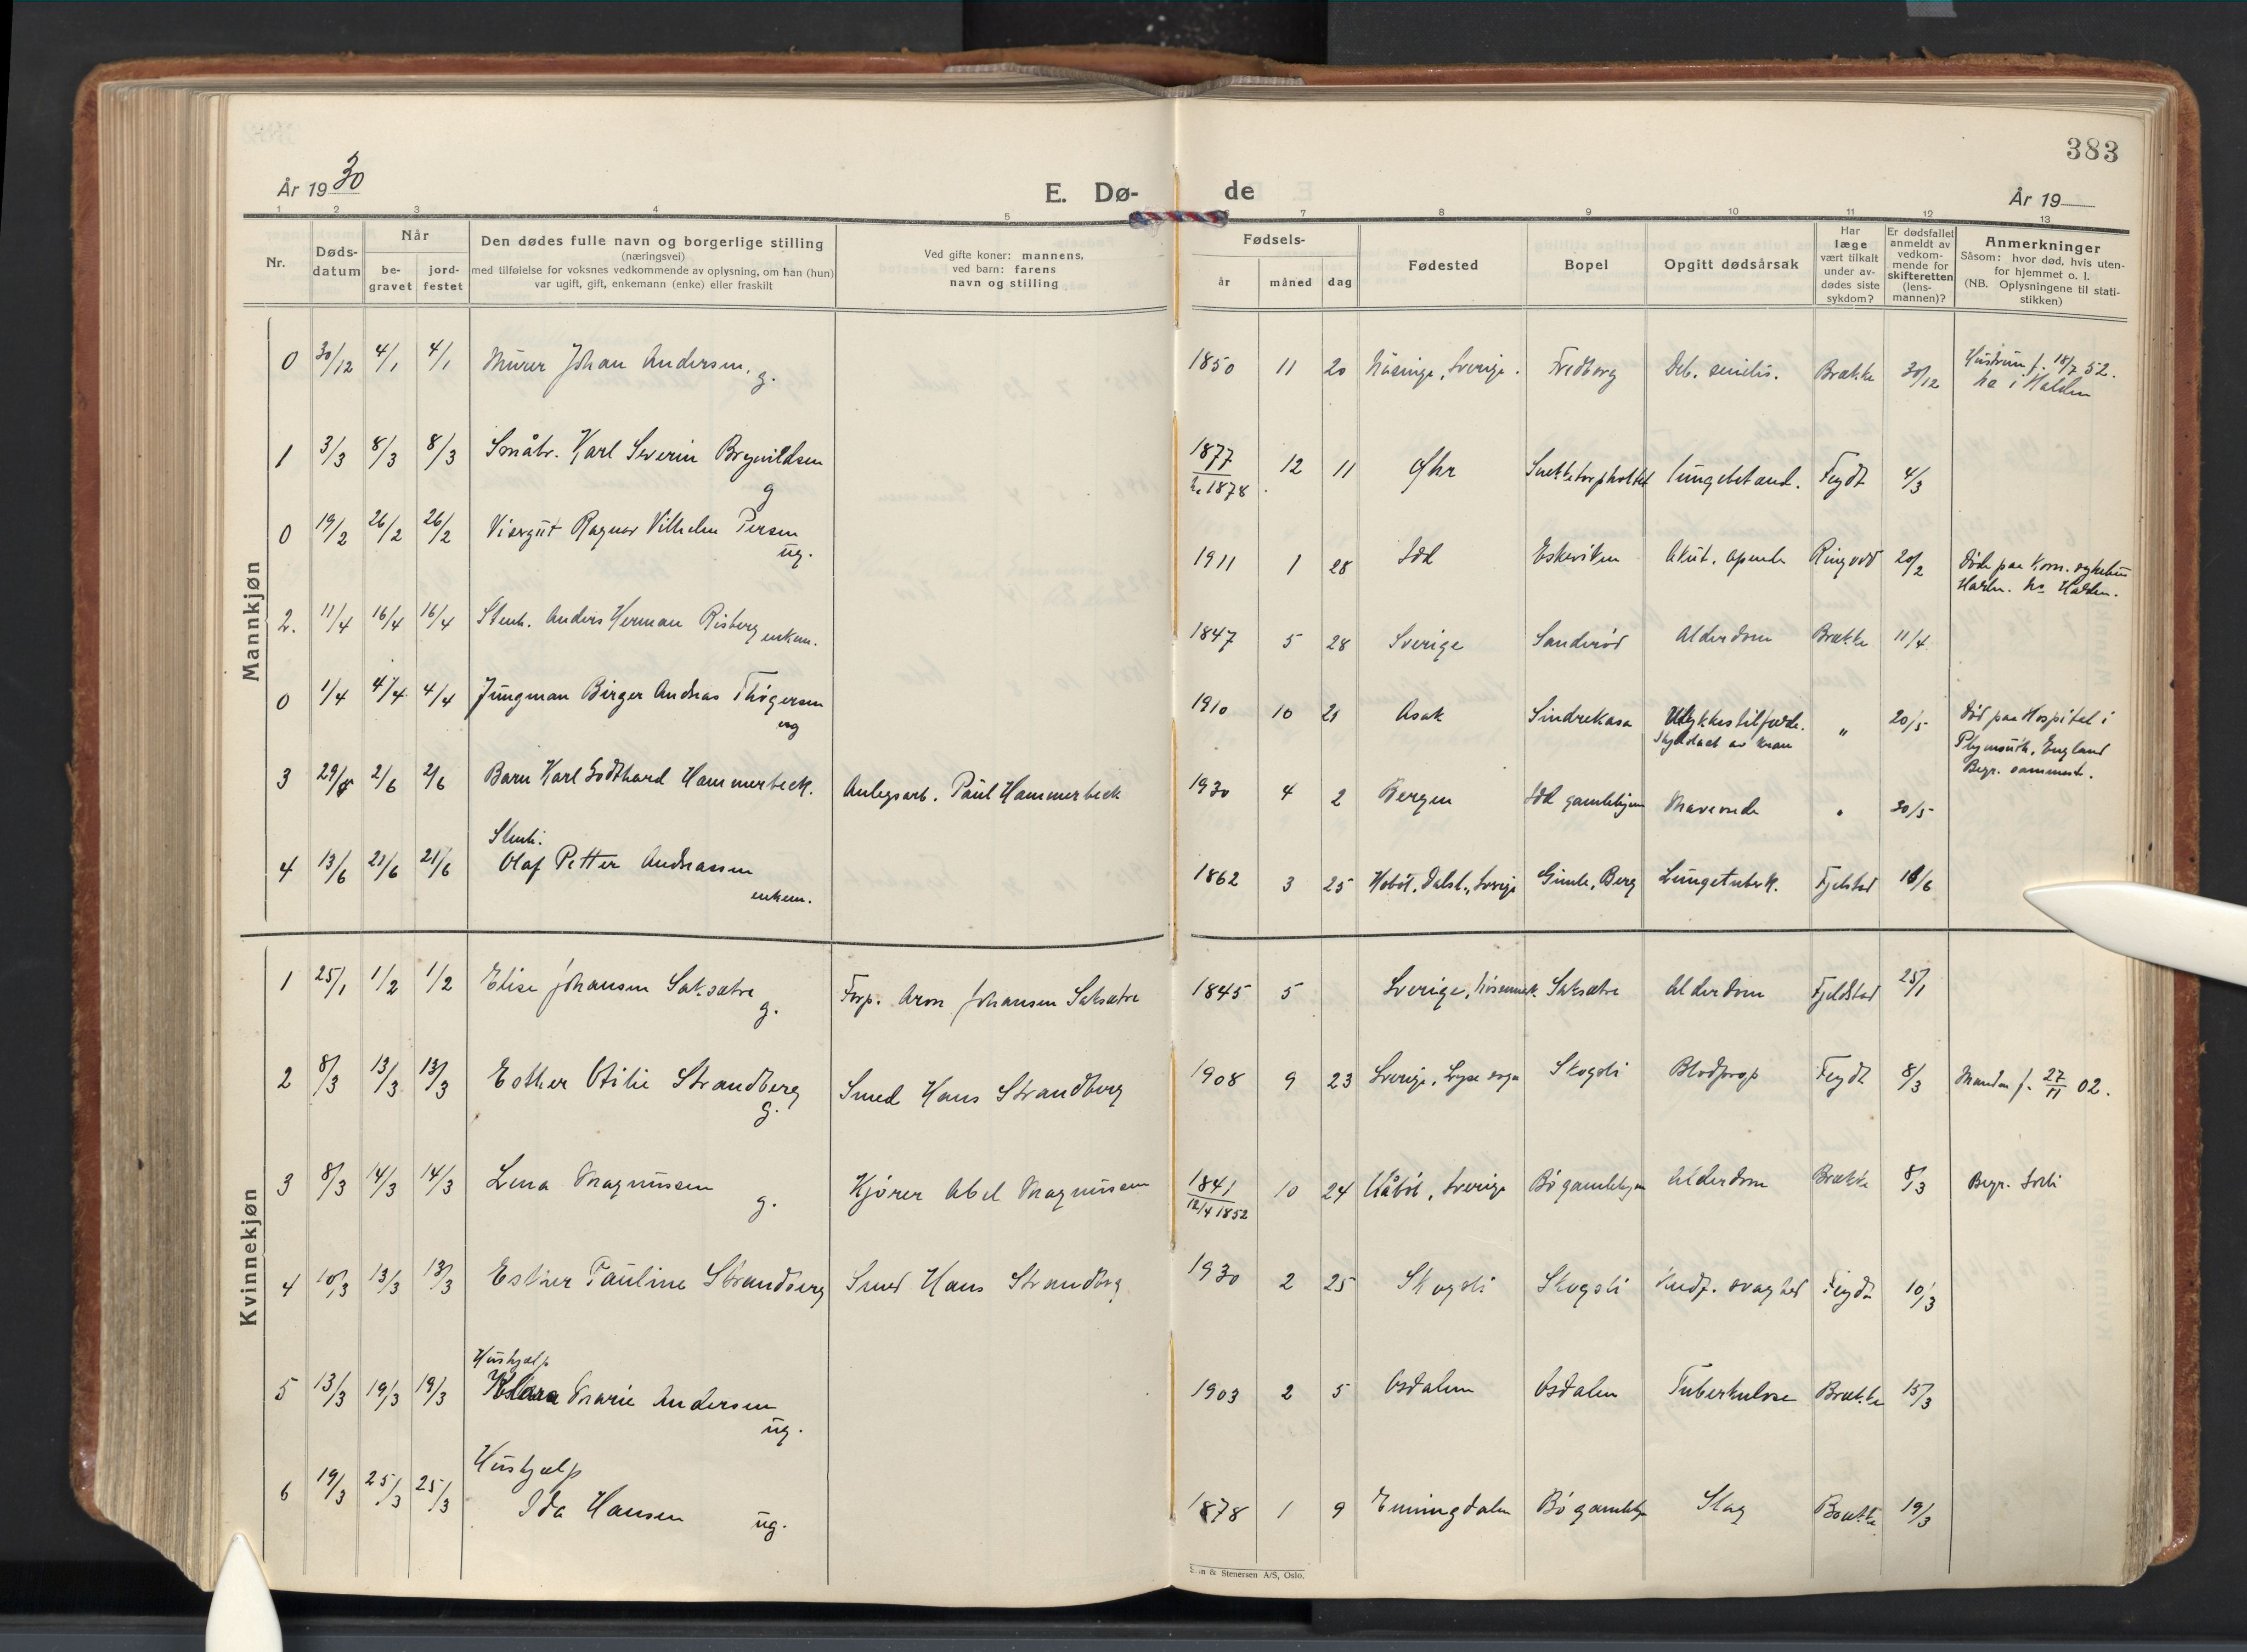 383
År 1930
E. Dø- de
År 19
1 2 3 4 5 6 7 8 9 10 11 12 13
Nr.
Døds-
datum
Når
be-
gravet
jord-
festet
Den dødes fulle navn og borgerlige stilling
(næringsvei)
med tilføielse for voksnes vedkommende av oplysning, om han (hun)
var ugift, gift, enkemann (enke) eller fraskilt
Ved gifte koner: mannens,
ved barn: farens
navn og stilling
Fødsels-
år måned dag
Fødested
Bopel
Opgitt dødsårsak
Har
læge
vært tilkalt
under av-
dødes siste
sykdom?
Er dødsfallet
anmeldt av
vedkom-
mende for
skifteretten
(lens-
mannen)?
Anmerkninger
Såsom: hvor død, hvis uten-
for hjemmet o. l.
(NB. Oplysningene til stati-
stikken)
Mannkjøn
0 30/12 4/1 4/1 Murer Johan Andersen. g. 1850 11 20 Näsinge, Sverige. Fredborg Deb. senilis. Brække 30/12 Hustrun f. 18/7 52.
i Halden
1 3/3 8/3 8/3 Småbr. Karl Severin Brynildsen 1877 12 11 Øhr lungebetænd. Feydt 4/3
g 1878
0 19/2 26/2 26/2 Visergut Ragnar Vilhelm Persen 1911 1 28 Idd Eskeviken Akut. apend. Ringvold 20/2 Døde paa Kom. sykehus
ug. Halden. Halden.
2. 11/4 16/4 16/4 Stenh. Anders Herman Risberg enkem. 1847 5 28 Sverige Sanderød Alderdom Brække 11/4
0 1/4 4/4 4/4 Jungman Birger Andreas Thøgersen 1910 10 21 Asak Sindrekasa Ulykkestilfælde. " 20/5 Død paa Hospital i
ug av kran Plymouth, England
Begr. sammest.
3 29/5 2/6 2/6 Barn Karl Godthard Hammerbeck. Anlegsarb. Paul Hammerbeck 1930 4 2 Bergen Idd gamlehjem Maveonde " 30/5
Stenh.
4 13/6 21/6 21/6 Olaf Petter Andreassen 1862 3 25 Håbøl, Dalsl., Sverige Gimle, Berg Lungetuberk. Fjelstad 16/6
enkem.
Kvinnekjøn
1 25/1 1/2 1/2 Elise Johansen Saksætre Forp. Aron Johansen Saksætre 1845 5 Sverige, Saksætre Alderdom Fjeldstad 25/1
g.
2 8/3 13/3 13/3 Esther Otilie Strandberg Smed Hans Strandberg 1908 9 23 Sverige, Lyse sogn Skogsli Blodprop Feydt 8/3 Manden f. 27/11 02.
g.
3 8/3 14/3 14/3 Lena Magnussen Kjører Abel Magnussen 1841 10 24 Håbøl, Sverige Bø gamlehjem Alderdom Brække 8/3 Begr.
g. 12/4 1852
4 10/3 13/3 13/3 Esther Pauline Strandberg Smed Hans Strandberg 1930 2 25 Skogsli Skogsli Medf. svaghed Feydt 10/3
Hushjælp
5 13/3 19/3 19/3 Klara Marie Andersen 1903 2 5 Osdalen Osdalen Tuberkulose Brække 15/3
ug.
Hushjælp
6 19/3 25/3 25/3 Ida Hansen ug. 1878 1 9 Enningdalen Bø gamlehj. Slag Brække 19/3
& Stenersen A/S, Oslo.